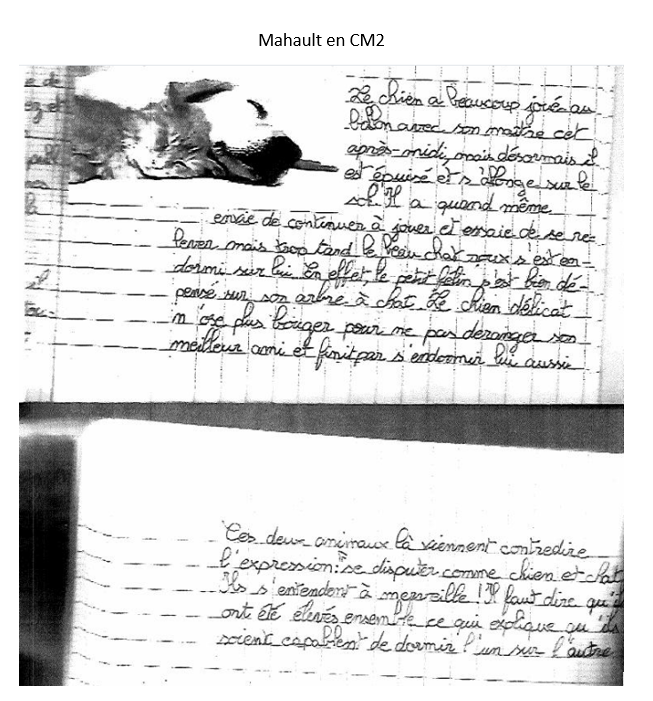 Mahault en CM2
e de
ez et
Le chien a beaucoup joué au
balon avec son maître cet
après-midi, mais désormais il
est épuisé et s'allonge sur le
sol. Il a quand même
envie de continuer à jouer et essaie de se re-
lever mais trop tard le beau chat roux s'est en-
dormi sur lui. En effet, le petit félin s'est bien dé-
pensé sur son arbre à chat. Le chien délicat
n'ose plus bouger pour ne pas déranger son
meilleur ami et finit par s'endormir lui aussi
Ces deux animaux là viennent contredire
l'expression: "se disputer comme chien et chat
Ils s'entendent à merveille ! Il faut dire qu'il
ont été élevés ensemble ce qui explique qu'ils
soient capablent de dormir l'un sur l'autre